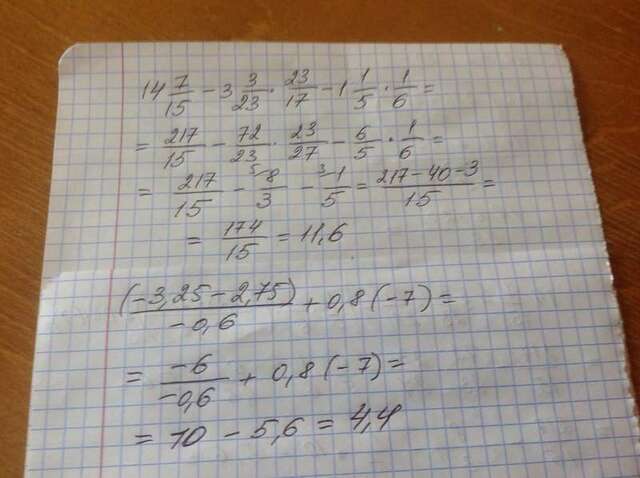 14 7/15 - 3 3/23 · 23/17 - 1 1/5 · 1/6 =
= 217/15 - 72/23 · 23/27 - 6/5 · 1/6 =
= 217/15 - 5\ 8/3 - 3\ 1/5 = (217 - 40 - 3)/15 =
= 174/15 = 11,6
(-3,25 - 2,75)/-0,6 + 0,8 (-7) =
= -6/-0,6 + 0,8 (-7) =
= 10 - 5,6 = 4,4